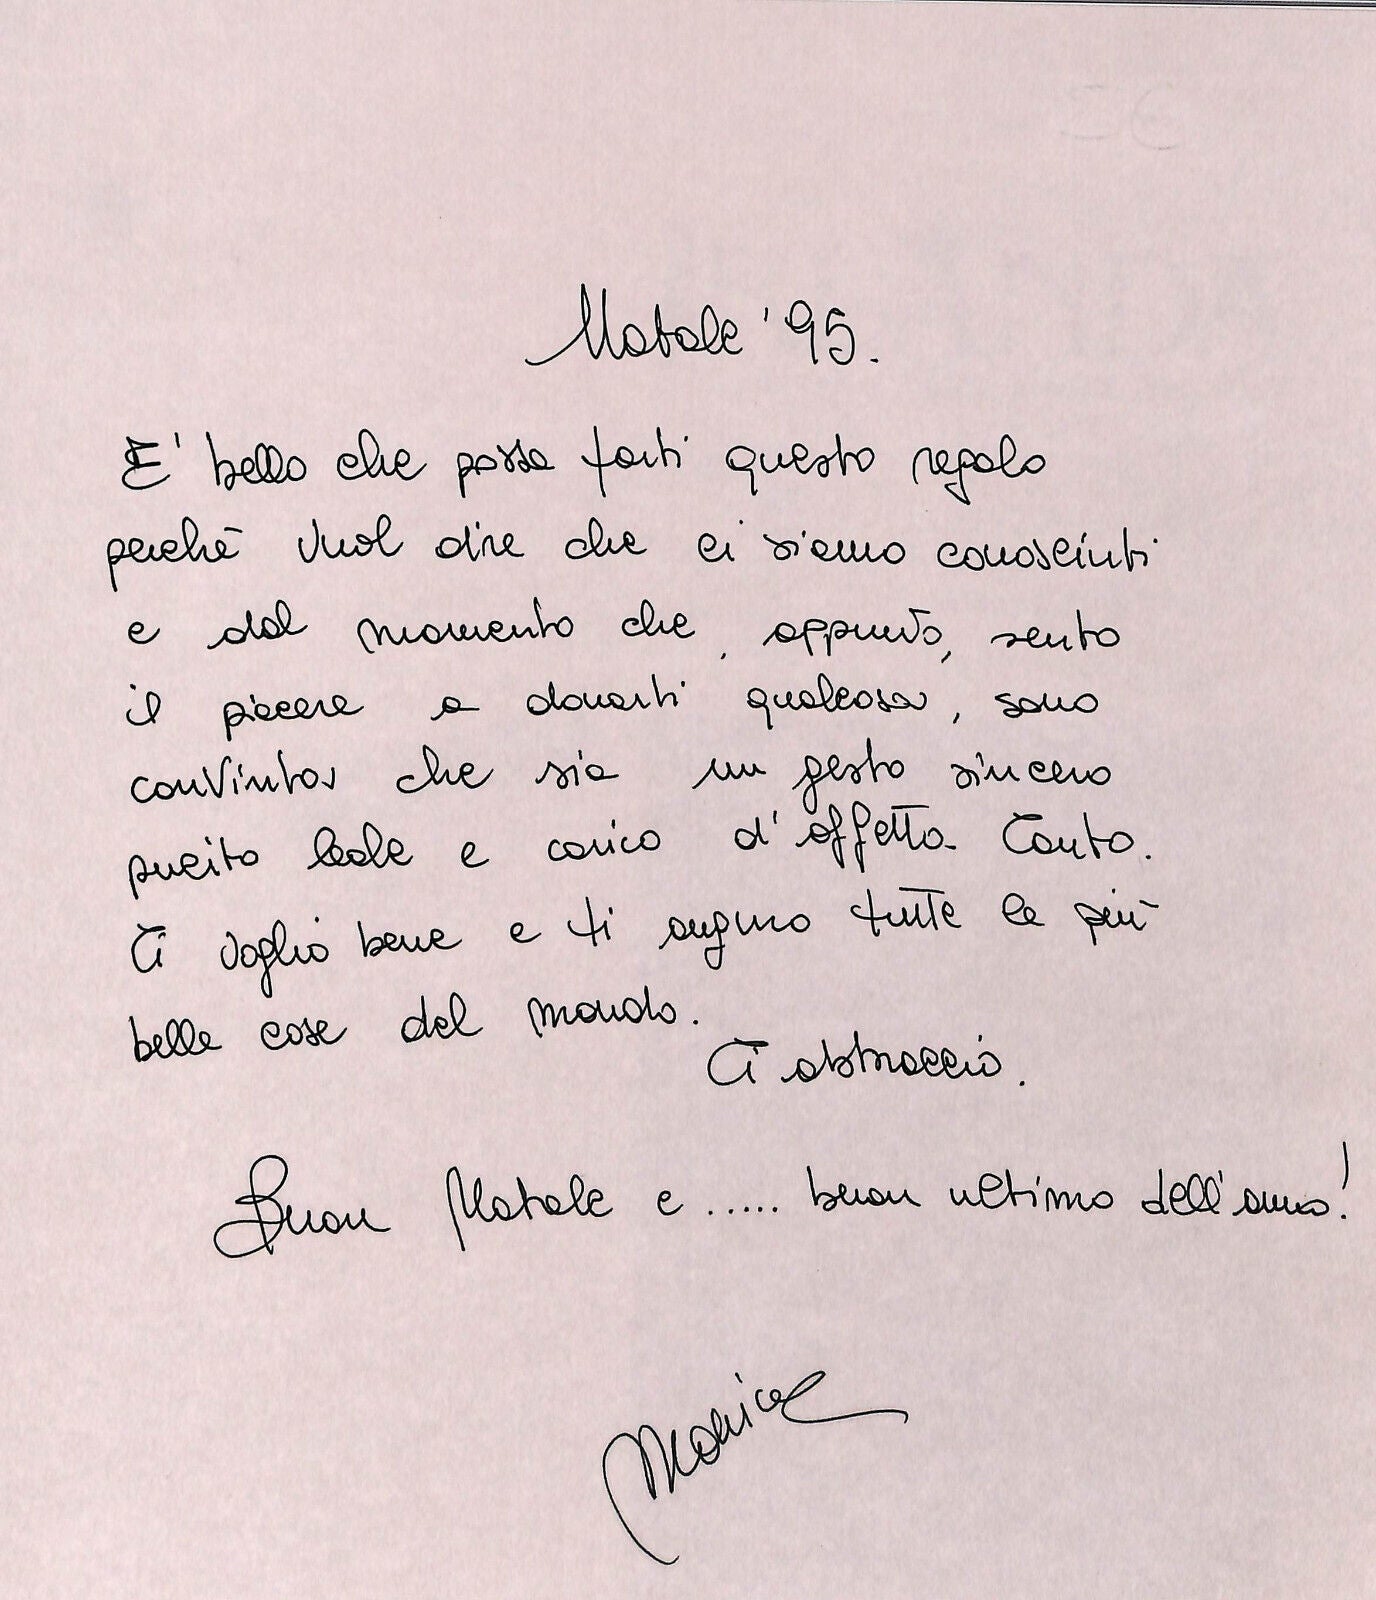 Natale '95.
E' bello che possa farti questo regalo
perchè vuol dire che ci siamo conosciuti
e dal momento che, appunto, sento
il piacere a donarti qualcosa, sono
convinta che sia un gesto sincero
pulito leale e carico d'affetto. Tanto.
Ti voglio bene e ti auguro tutte le più
belle cose del mondo.
Ti abbraccio.
Buon Natale e ..... buon ultimo dell'anno!
Monica